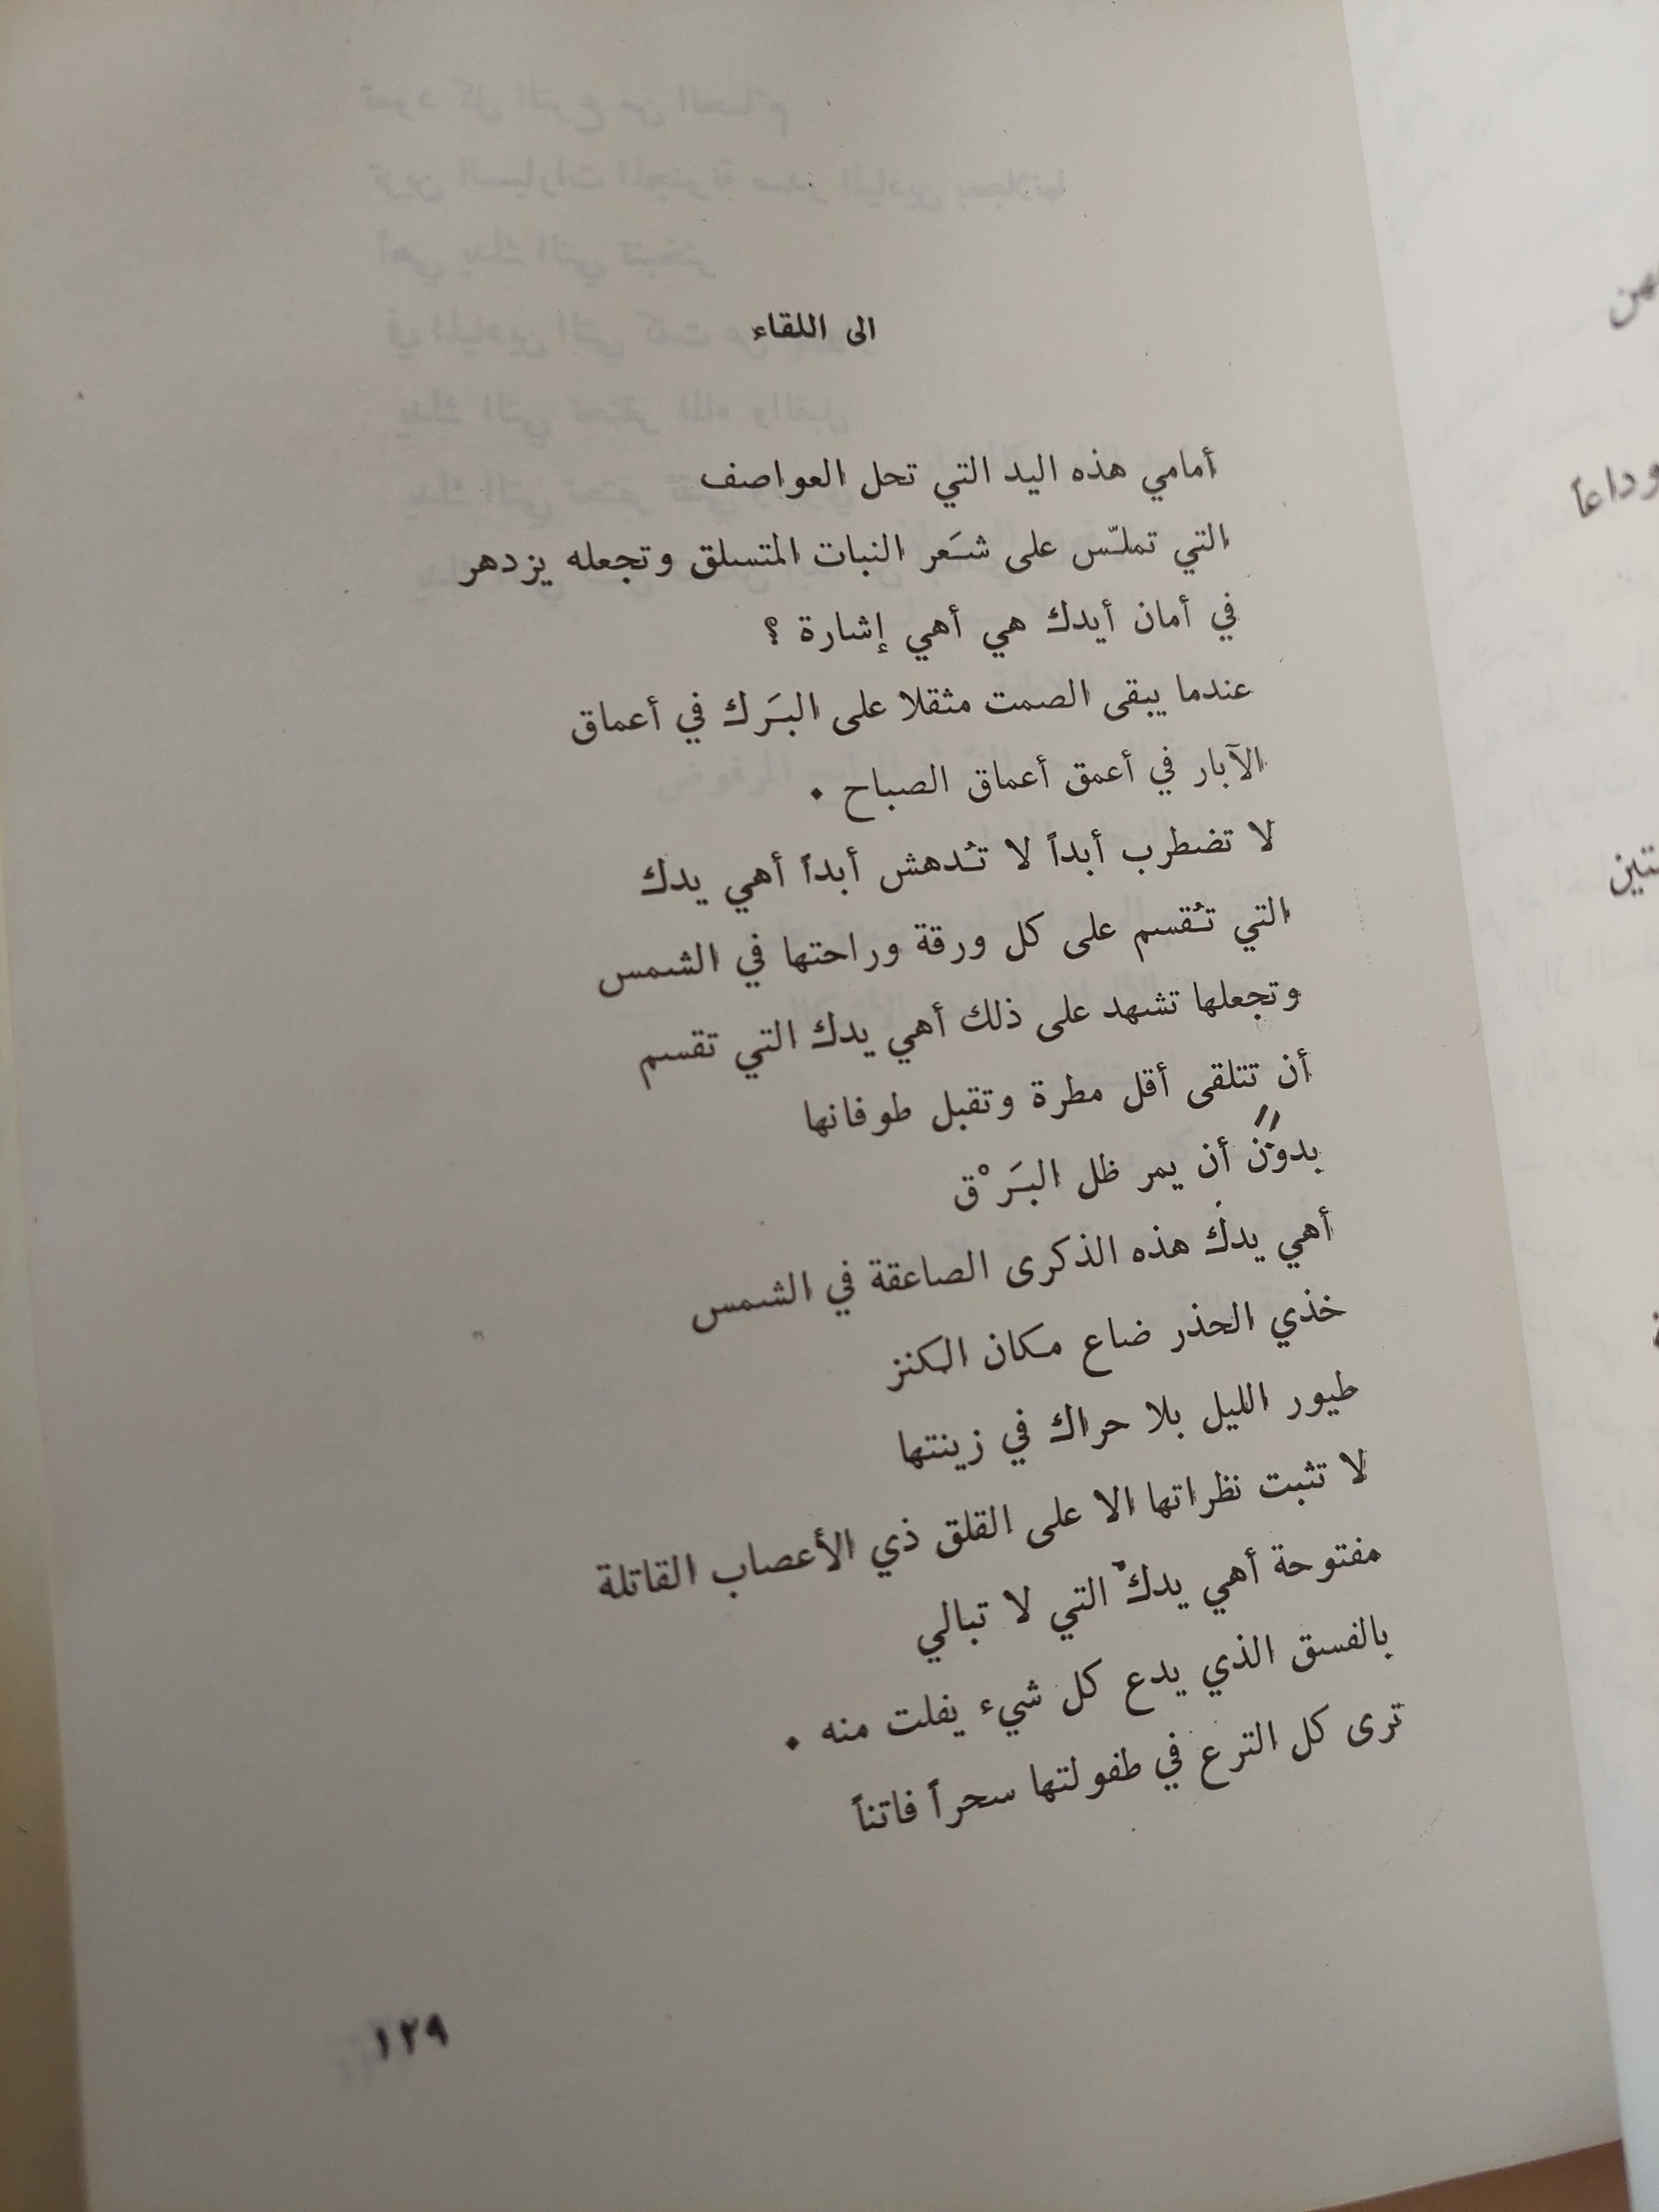 الى اللقاء
أمامي هذه اليد التي تحل العواصف
التي تملّس على شَعر النبات المتسلق وتجعله يزدهر
في أمان أيدك هي أهي إشارة ؟
عندما يبقى الصمت مثقلا على البَرك في أعماق
الآبار في أعمق أعماق الصباح .
لا تضطرب أبداً لا تُدهش أبداً أهي يدك
التي تُقسم على كل ورقة وراحتها في الشمس
وتجعلها تشهد على ذلك أهي يدك التي تقسم
أن تتلقى أقل مطرة وتقبل طوفانها
بدون أن يمر ظل البَرْق
أهي يدك هذه الذكرى الصاعقة في الشمس
خذي الحذر ضاع مكان الكنز
طيور الليل بلا حراك في زينتها
لا تثبت نظراتها الا على القلق ذي الأعصاب القاتلة
مفتوحة أهي يدك التي لا تبالي
بالفسق الذي يدع كل شيء يفلت منه .
ترى كل الترع في طفولتها سحراً فاتناً
١٢٩
لهن
وداعاً